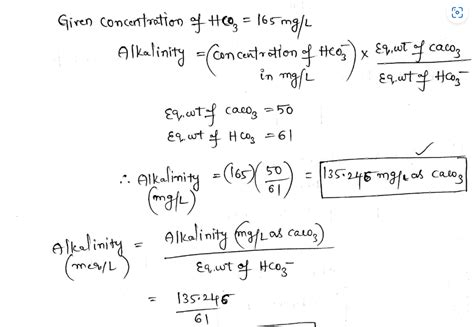 Given concentration of HCO3 = 165 mg/L
Alkalinity = (concentration of HCO3⁻ in mg/L) × Eq.wt of CaCO3 / Eq.wt of HCO3⁻
Eq.wt of CaCO3 = 50
Eq.wt of HCO3 = 61
∴ Alkalinity (mg/L) = (165)(50/61) = 135.246 mg/L as CaCO3
Alkalinity (meq/L) = Alkalinity (mg/L as CaCO3) / Eq.wt of HCO3⁻
= 135.246 / 61